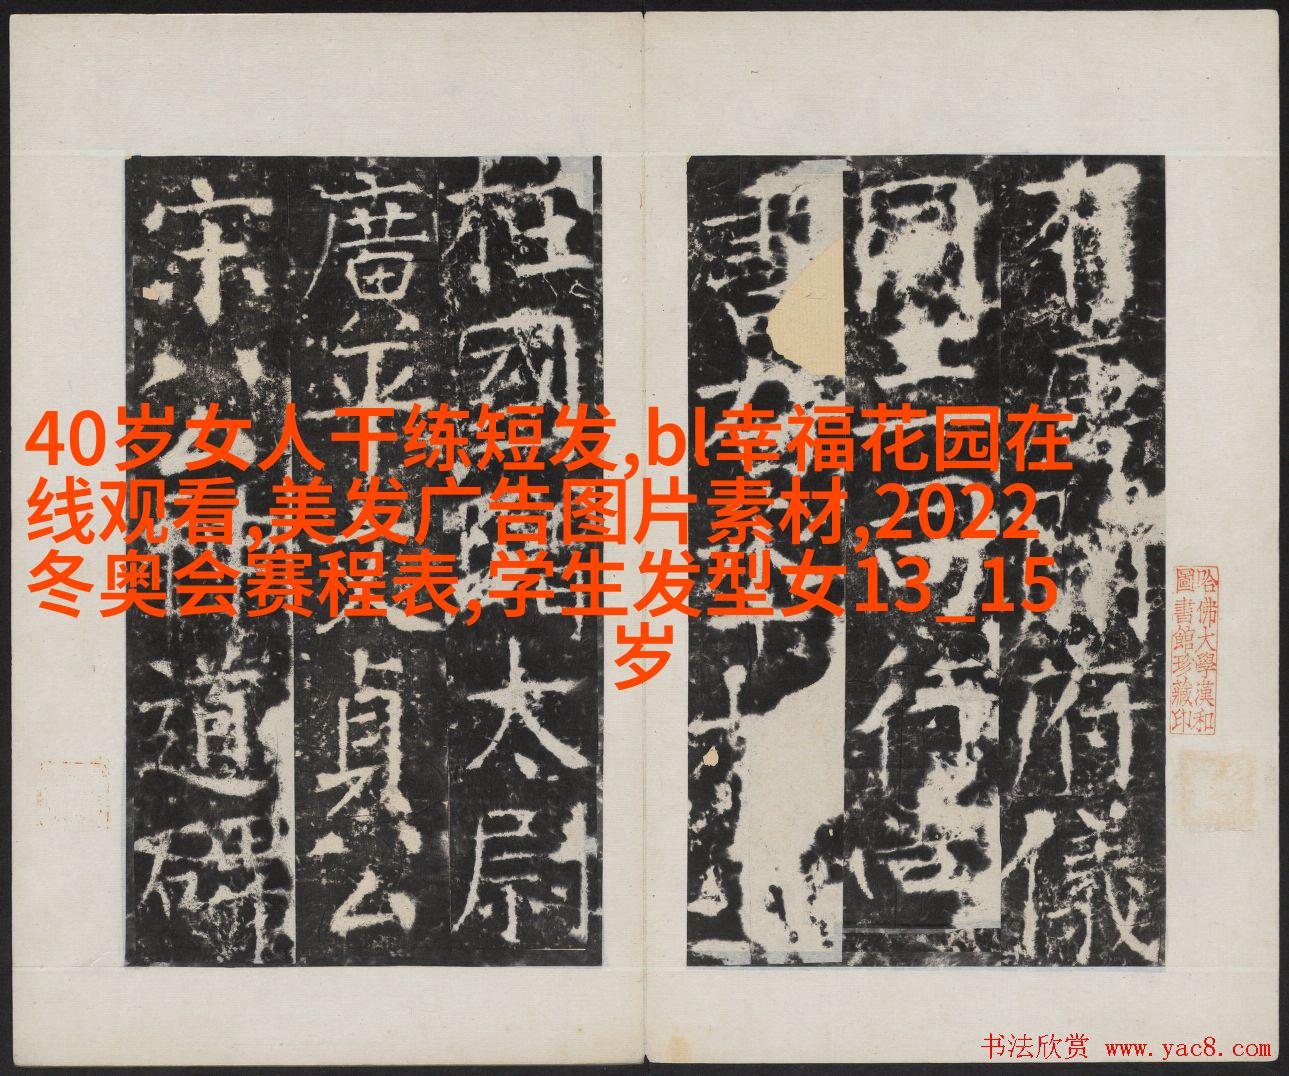 40岁女人干练短发,bl幸福花园在
线观看,美发广告图片素材,2022
冬奥会赛程表,学生发型女13_15
岁
有唐開府儀
同三司行
柱國太尉
廣平貞公
宋公道碑
哈佛大學漢和
圖書館珍藏印
书法欣赏 www.yac8.com